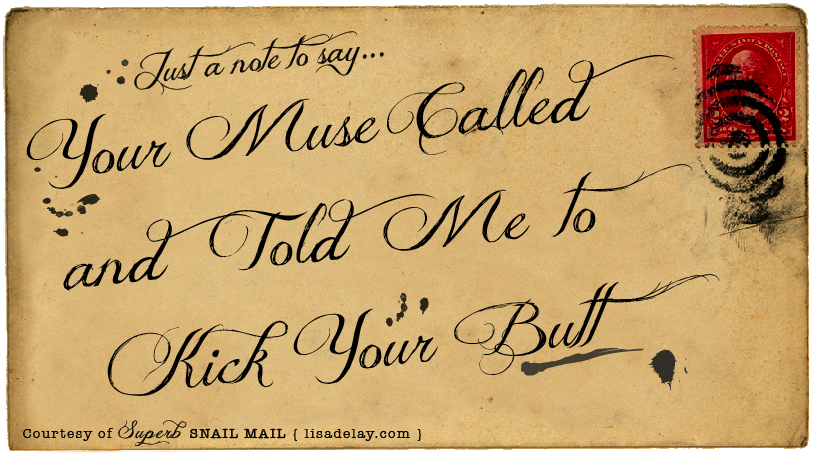 Just a note to say...
Your Muse Called
and Told Me to
Kick Your Butt
Courtesy of Superb SNAIL MAIL { lisadelay.com }
2